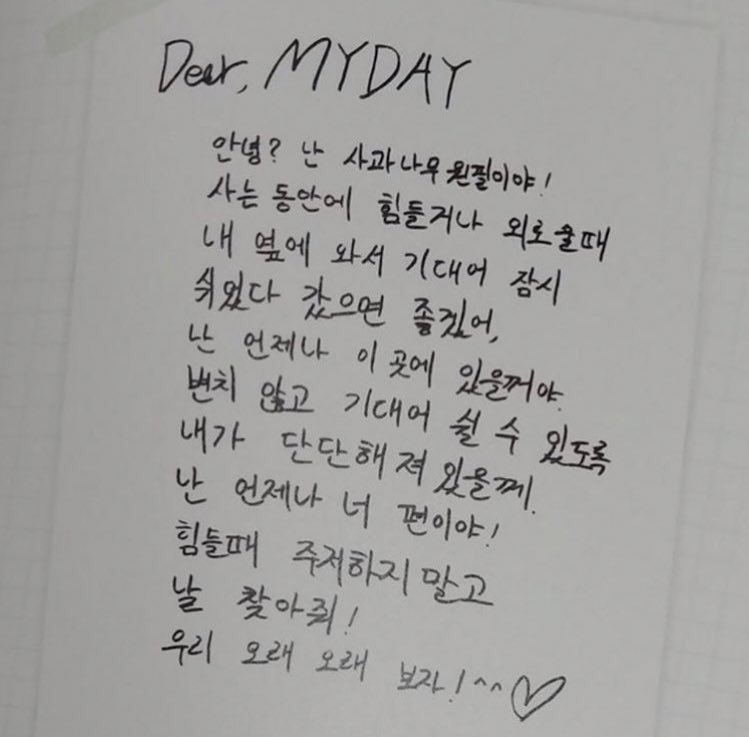 Dear, MYDAY
안녕? 난 사과나무 원필이야!
사는 동안에 힘들거나 외로울때
내 옆에 와서 기대어 잠시
쉬었다 갔으면 좋겠어,
난 언제나 이 곳에 있을꺼야.
변치 않고 기대어 쉴 수 있도록
내가 단단해져 있을께.
난 언제나 너 편이야!
힘들때 주저하지 말고
날 찾아줘!
우리 오래 오래 보자! ^^♡